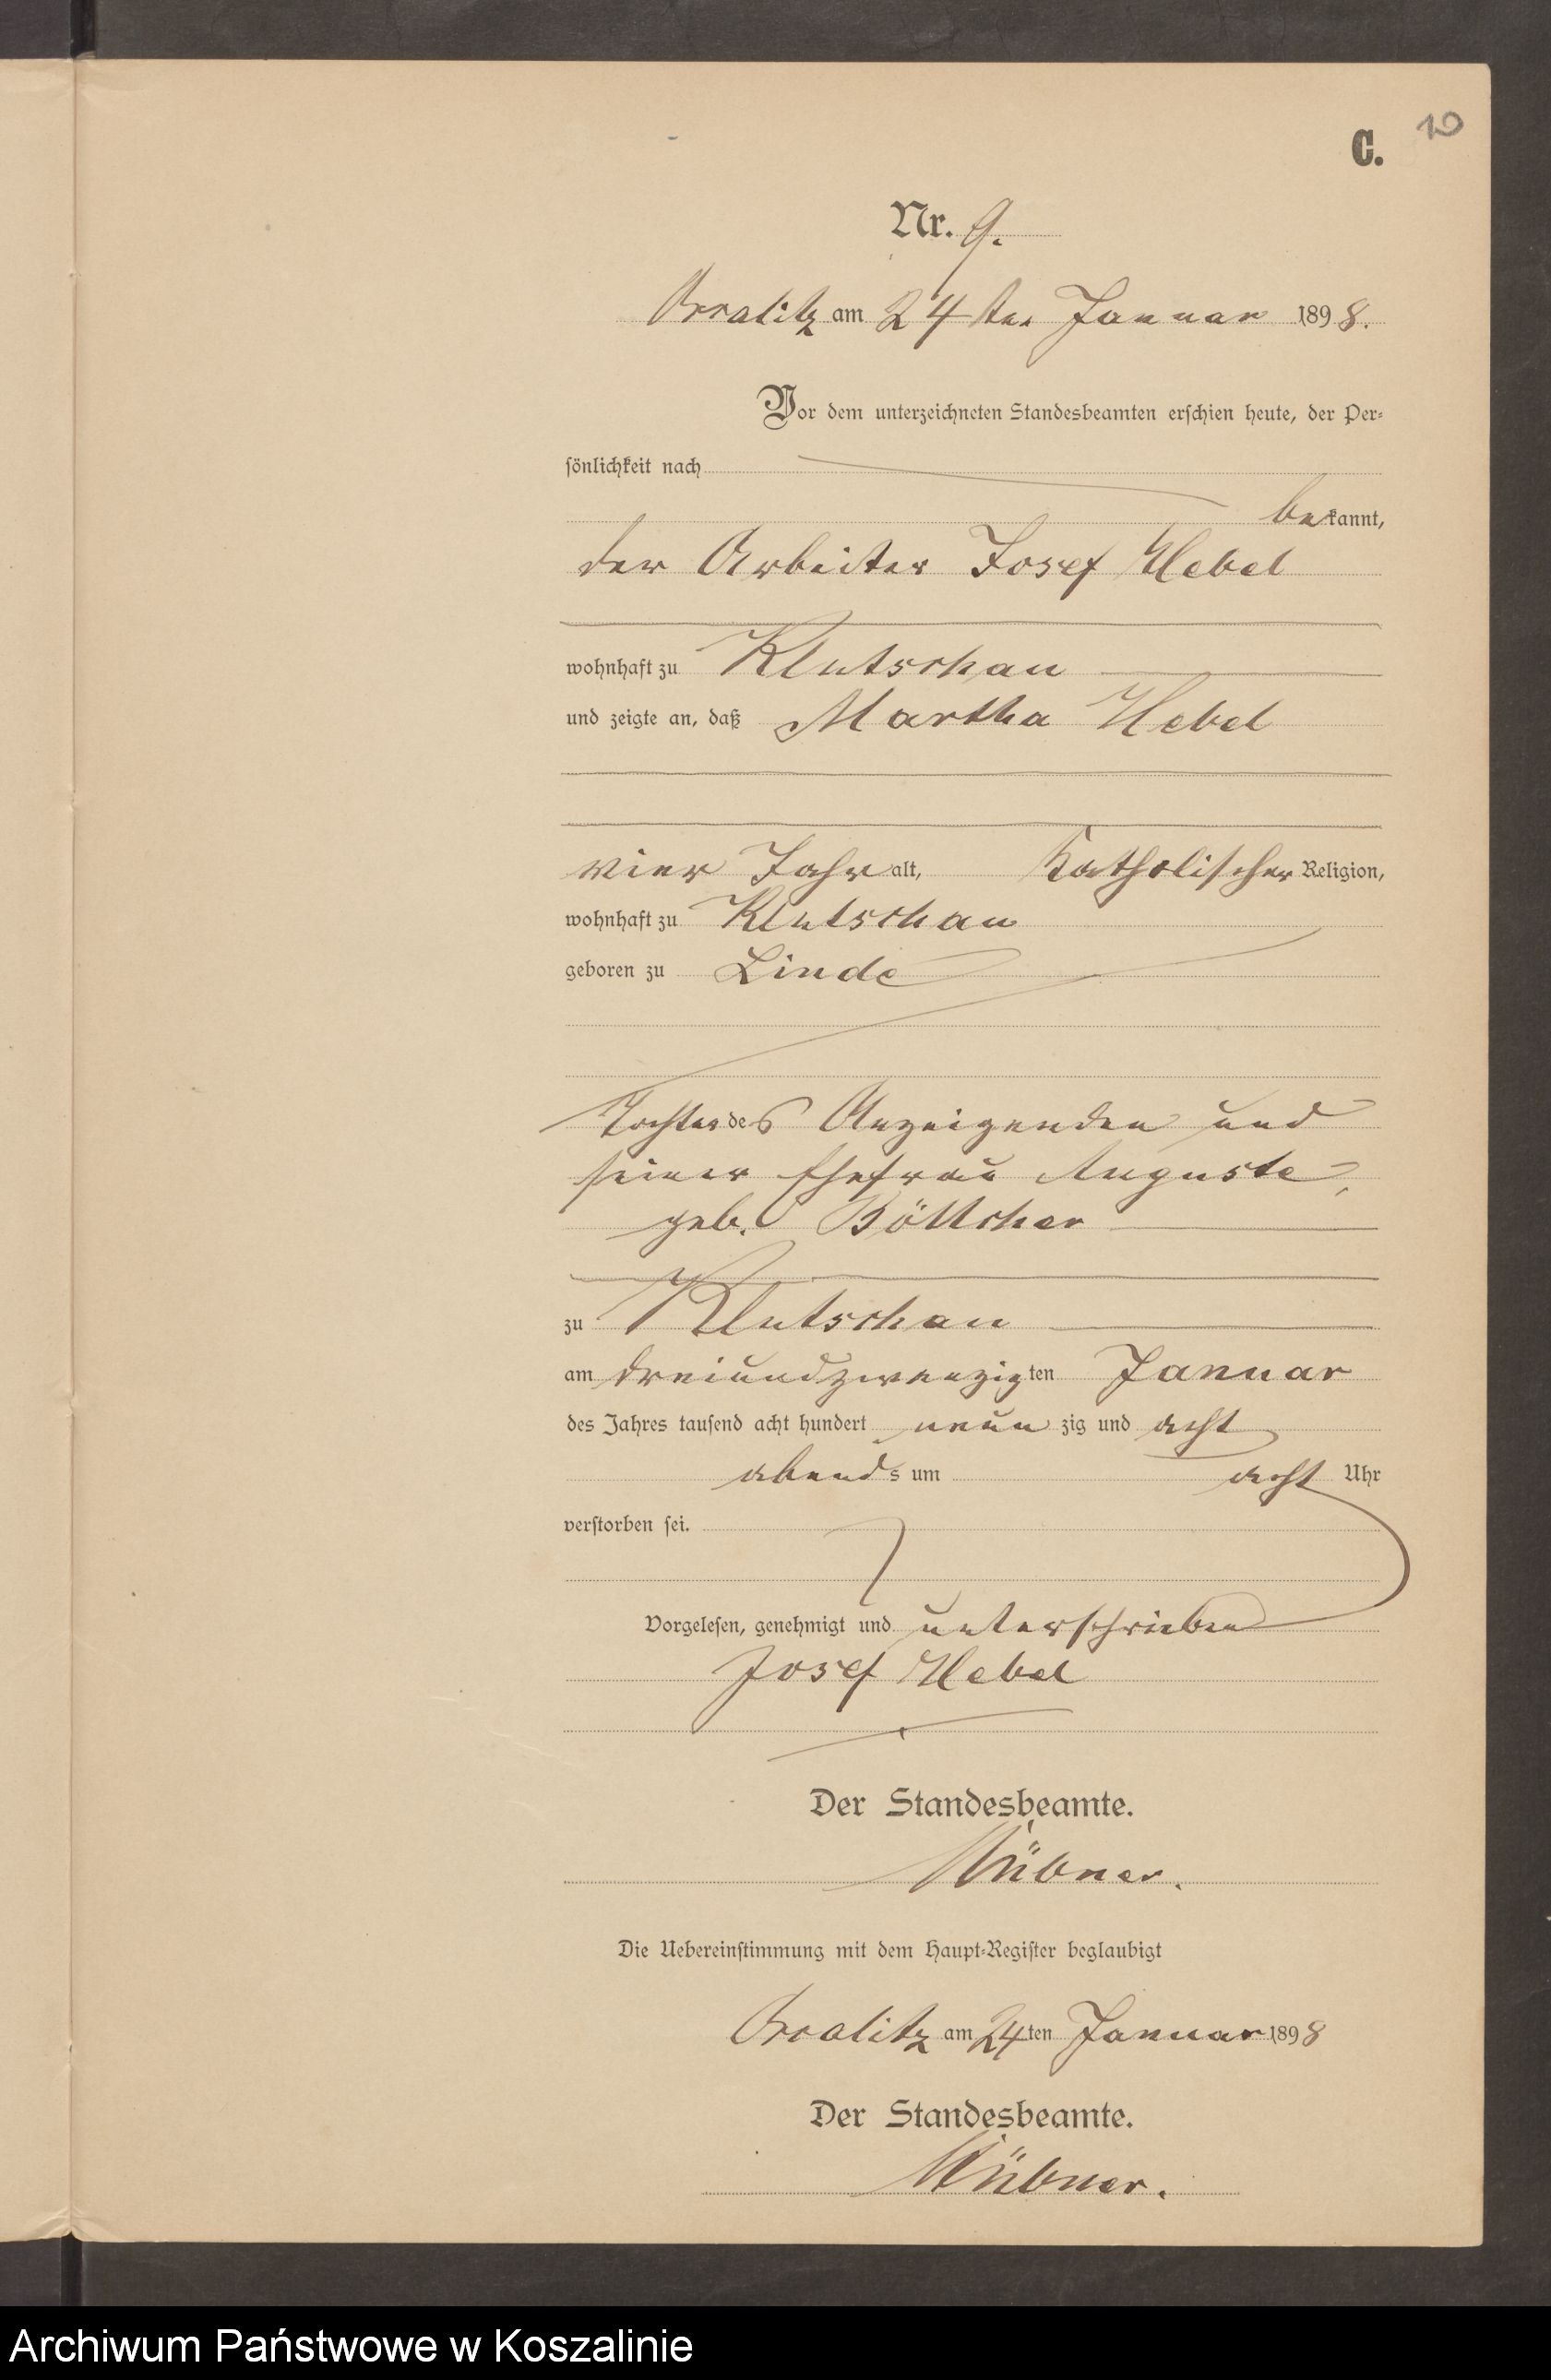 10
C.
Nr. 9.
am 24ten Januar 1898.
Vor dem unterzeichneten Standesbeamten erschien heute, der Per-
sönlichkeit nach
bekannt,
der Arbeiter Josef Hebel
wohnhaft zu Klutschau
und zeigte an, daß Martha Hebel
vier Jahr alt, Katholischer Religion,
wohnhaft zu Klutschau
geboren zu Linde
Tochter des Anzeigenden und
seiner Ehefrau Auguste,
geb. Böttcher
zu Klutschau
am dreiundzwanzigten Januar
des Jahres tausend acht hundert neunzig und acht
abends um acht Uhr
verstorben sei.
Vorgelesen, genehmigt und unterschrieben
Josef Hebel
Der Standesbeamte.
Die Uebereinstimmung mit dem Haupt-Register beglaubigt
am 24ten Januar 1898
Der Standesbeamte.
Archiwum Państwowe w Koszalinie